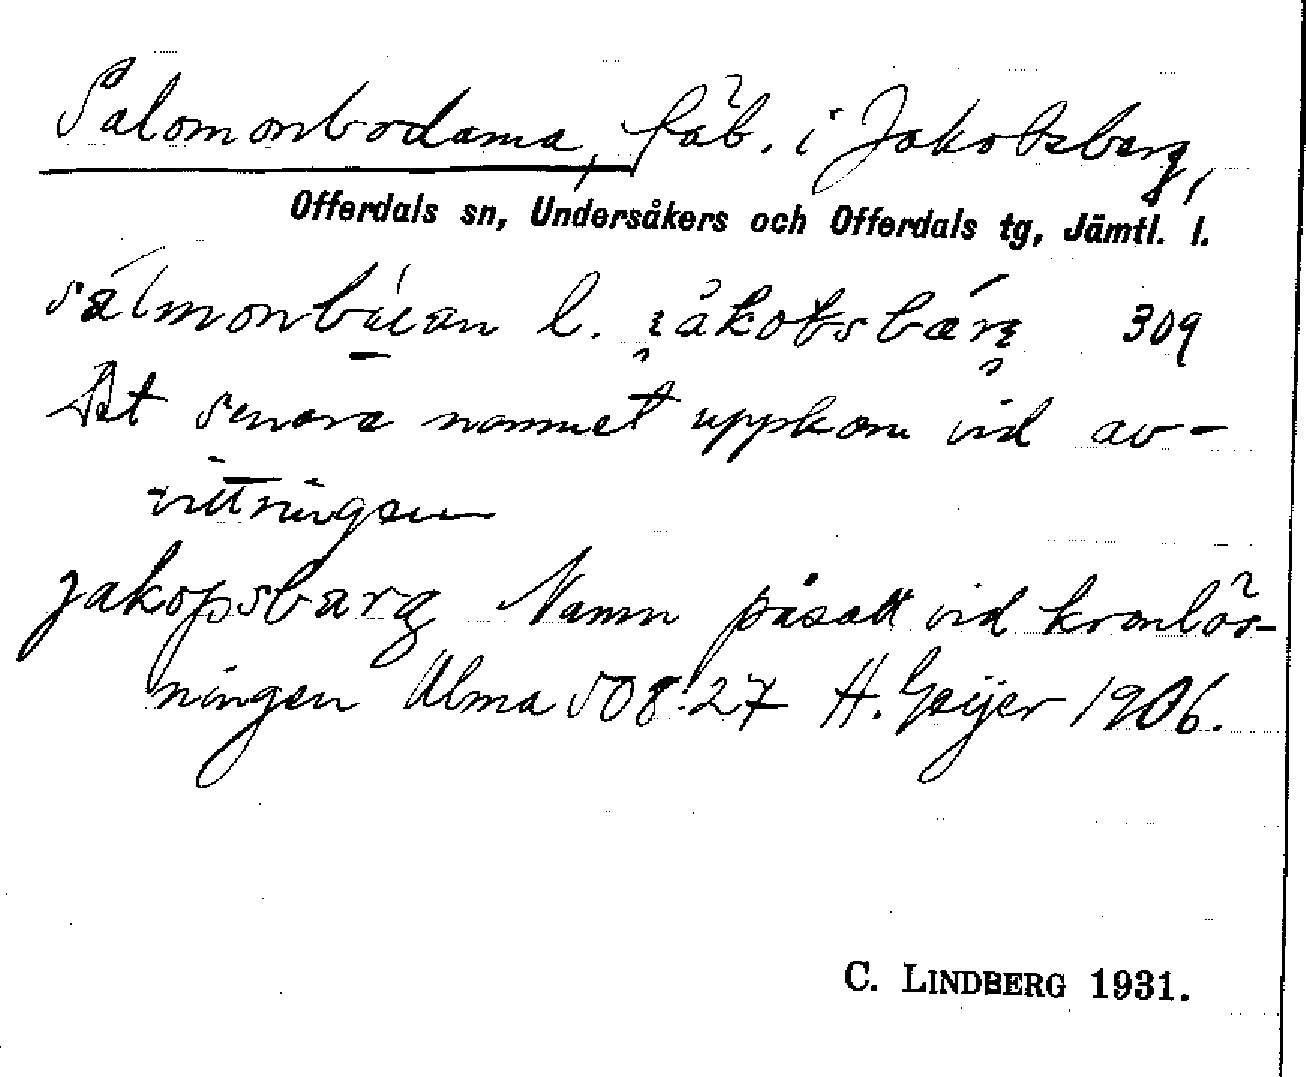 Salomonbodarna, fäb. i Jakobsberg,
Offerdals sn, Undersåkers och Offerdals tg, Jämtl. l.
l. 309
Det senare namnet uppkom vid av-
vittringen
jakopsbarg Namn påsatt vid kronlös-
ningen Ulma 508:27 H. Geijer 1906.
C. LINDBERG 1931.